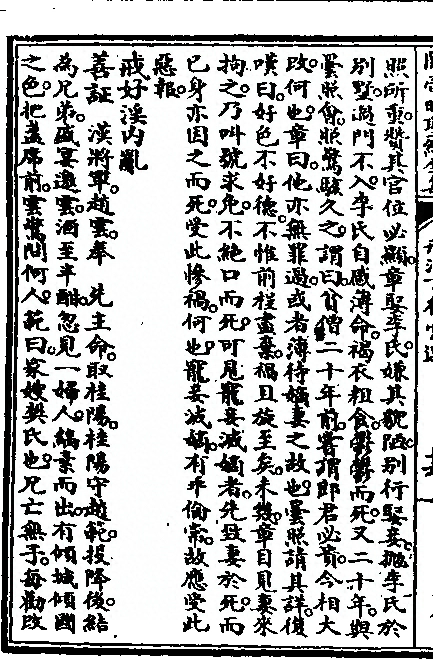 照所重贊其官位必顯章娶李氏嫌其貌陋别行娶妾擯李氏於
别墅過門不入李氏自感薄命褐衣粗食欝欝而死又二十年與
曇照會照驚駭久之謂曰貧僧二十年前嘗謂郎君必貴今相大
改何也章曰他亦無罪過或者薄待嫡妻之故也曇照請其詳復
嘆曰好色不好德不惟前程盡棄禍且旋至矣未幾章目見妻來
拘之乃叫號求免不絶口而死可見寵妾滅嫡者先致妻於死而
已身亦因之而死受此慘禍何也寵妾滅嫡有乖倫常故應受此
惡報
戒好淫内亂
善証 漢將軍趙雲奉 先主命取桂陽桂陽守趙範投降後結
為兄弟盛宴邀雲酒至半酣忽見一婦人縞素而出有傾城傾國
之色把盞席前雲驚問何人範曰家嫂樊氏也兄亡無子每勸改